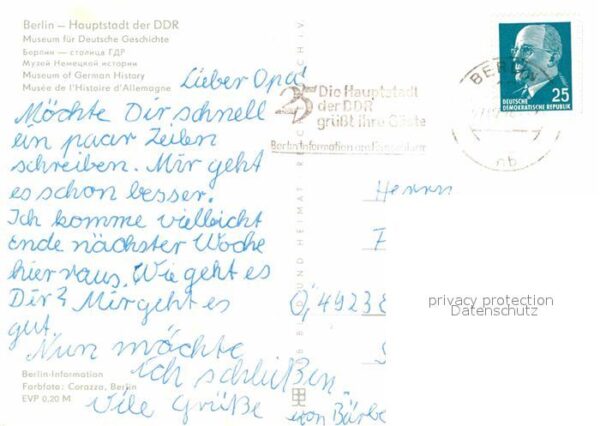 Berlin – Hauptstadt der DDR
Museum für Deutsche Geschichte
Берлин — столица ГДР
Музей Немецкой истории
Museum of German History
Musée de l'Histoire d'Allemagne
Lieber Opa!
Möchte Dir schnell
ein paar Zeilen
schreiben. Mir geht
es schon besser.
Ich komme vielleicht
Ende nächster Woche
hier raus. Wie geht es
Dir? Mir geht es
gut.
Nun möchte
ich schließen.
Vile Grüße von Bärbe
Berlin-Information
Farbfoto: Corazza, Berlin
EVP 0,20 M
BILD UND HEIMAT REICHENB
25 Die Hauptstadt
der DDR
grüßt ihre Gäste
Berlin-Information
BERLIN
nb
DEUTSCHE
DEMOKRATISCHE REPUBLIK 25
Herrn
F
4923
privacy protection
Datenschutz